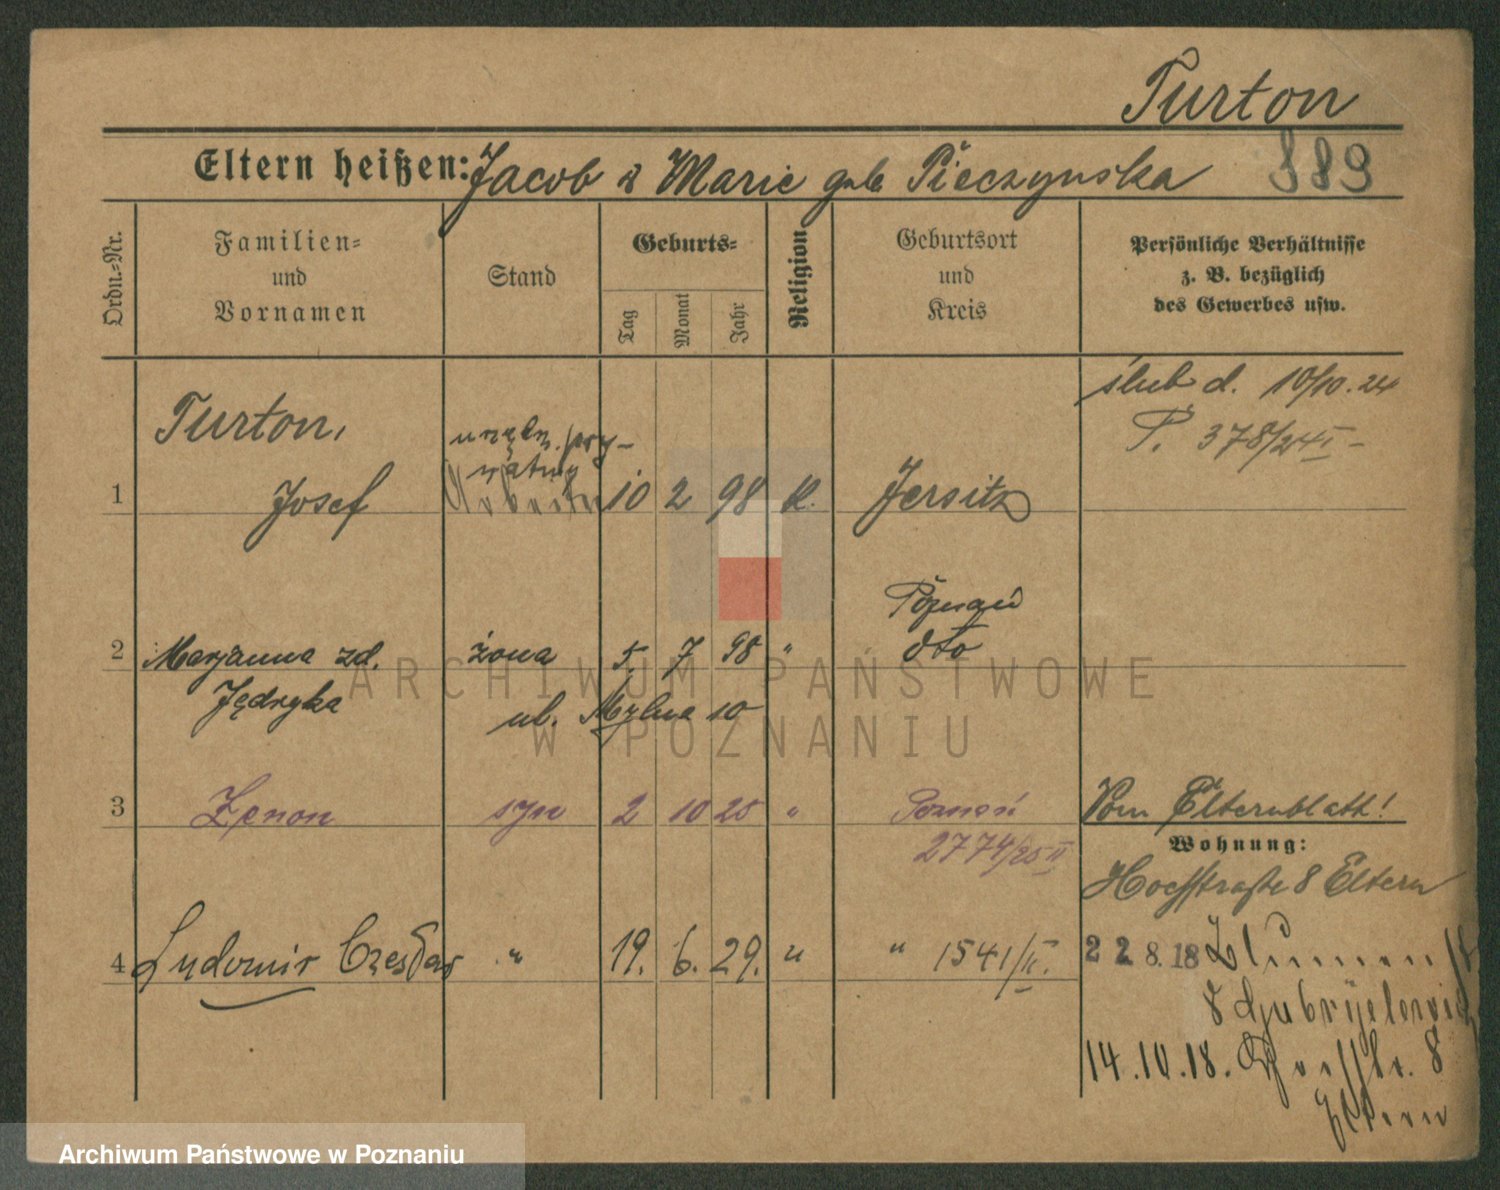 Turton
Eltern heißen: Jacob & Marie geb Pieczynska 889
Ordn.=Nr.
Familien=
und
Vornamen
Stand
Geburts=
Tag
Monat
Jahr
Religion
Geburtsort
und
Kreis
Persönliche Verhältnisse
z. B. bezüglich
des Gewerbes usw.
ślub d. 10/10.24
P. 378/24 II
Turton,
urzędn. pry-
watny
1 Josef Arbeiter 10 2 98 k. Jersitz
Poznań
2 Marjanna zd. żona 5. 7 98 " dto
Jędryka
ul. Młyna 10
3 Zenon syn 2 10 25 " Poznań
2774/25 II
Vom Elternblatt!
Wohnung:
Hochstraße 8 Eltern
4 Ludomir Czesław " 19. 6. 29. " " 1541/II.
22 8.18
8
14.10.18. 8
Eltern
ARCHIWUM PAŃSTWOWE
W POZNANIU
Archiwum Państwowe w Poznaniu